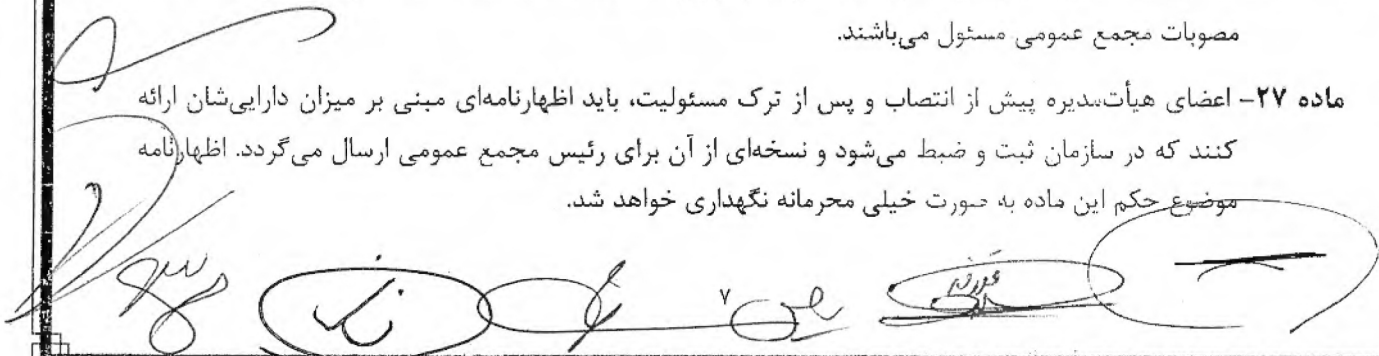 مصوبات مجمع عمومی مسئول می‌باشند.
ماده ۲۷- اعضای هیأت‌مدیره پیش از انتصاب و پس از ترک مسئولیت، باید اظهارنامه‌ای مبنی بر میزان دارایی‌شان ارائه
کنند که در سازمان ثبت و ضبط می‌شود و نسخه‌ای از آن برای رئیس مجمع عمومی ارسال می‌گردد. اظهارنامه
موضوع حکم این ماده به صورت خیلی محرمانه نگهداری خواهد شد.
۷